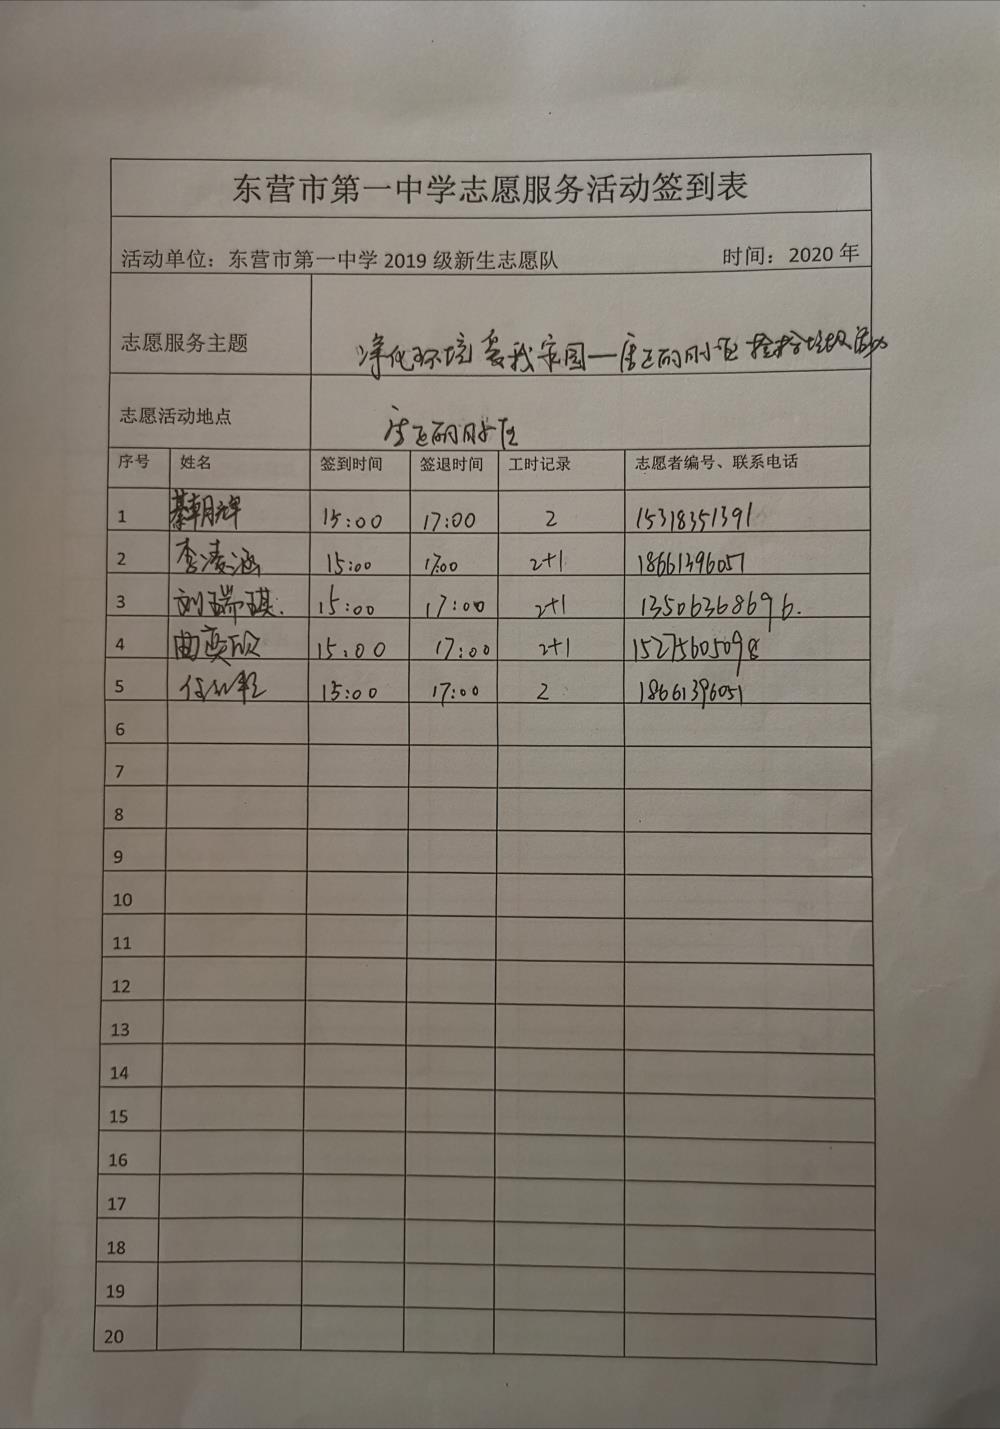 东营市第一中学志愿服务活动签到表
活动单位：东营市第一中学2019级新生志愿队 时间：2020年
志愿服务主题 净化环境 爱我家园一 小区捡拾垃圾活动
志愿活动地点
序号 姓名 签到时间 签退时间 工时记录 志愿者编号、联系电话
1 綦朝辉 15:00 17:00 2 15318351391
2 李凌涵 15:00 17:00 2+1 18661396051
3 刘瑞琪. 15:00 17:00 2+1 13506368696.
4 曲奕欣 15:00 17:00 2+1 15275605098
5 15:00 17:00 2 18661396051
6
7
8
9
10
11
12
13
14
15
16
17
18
19
20